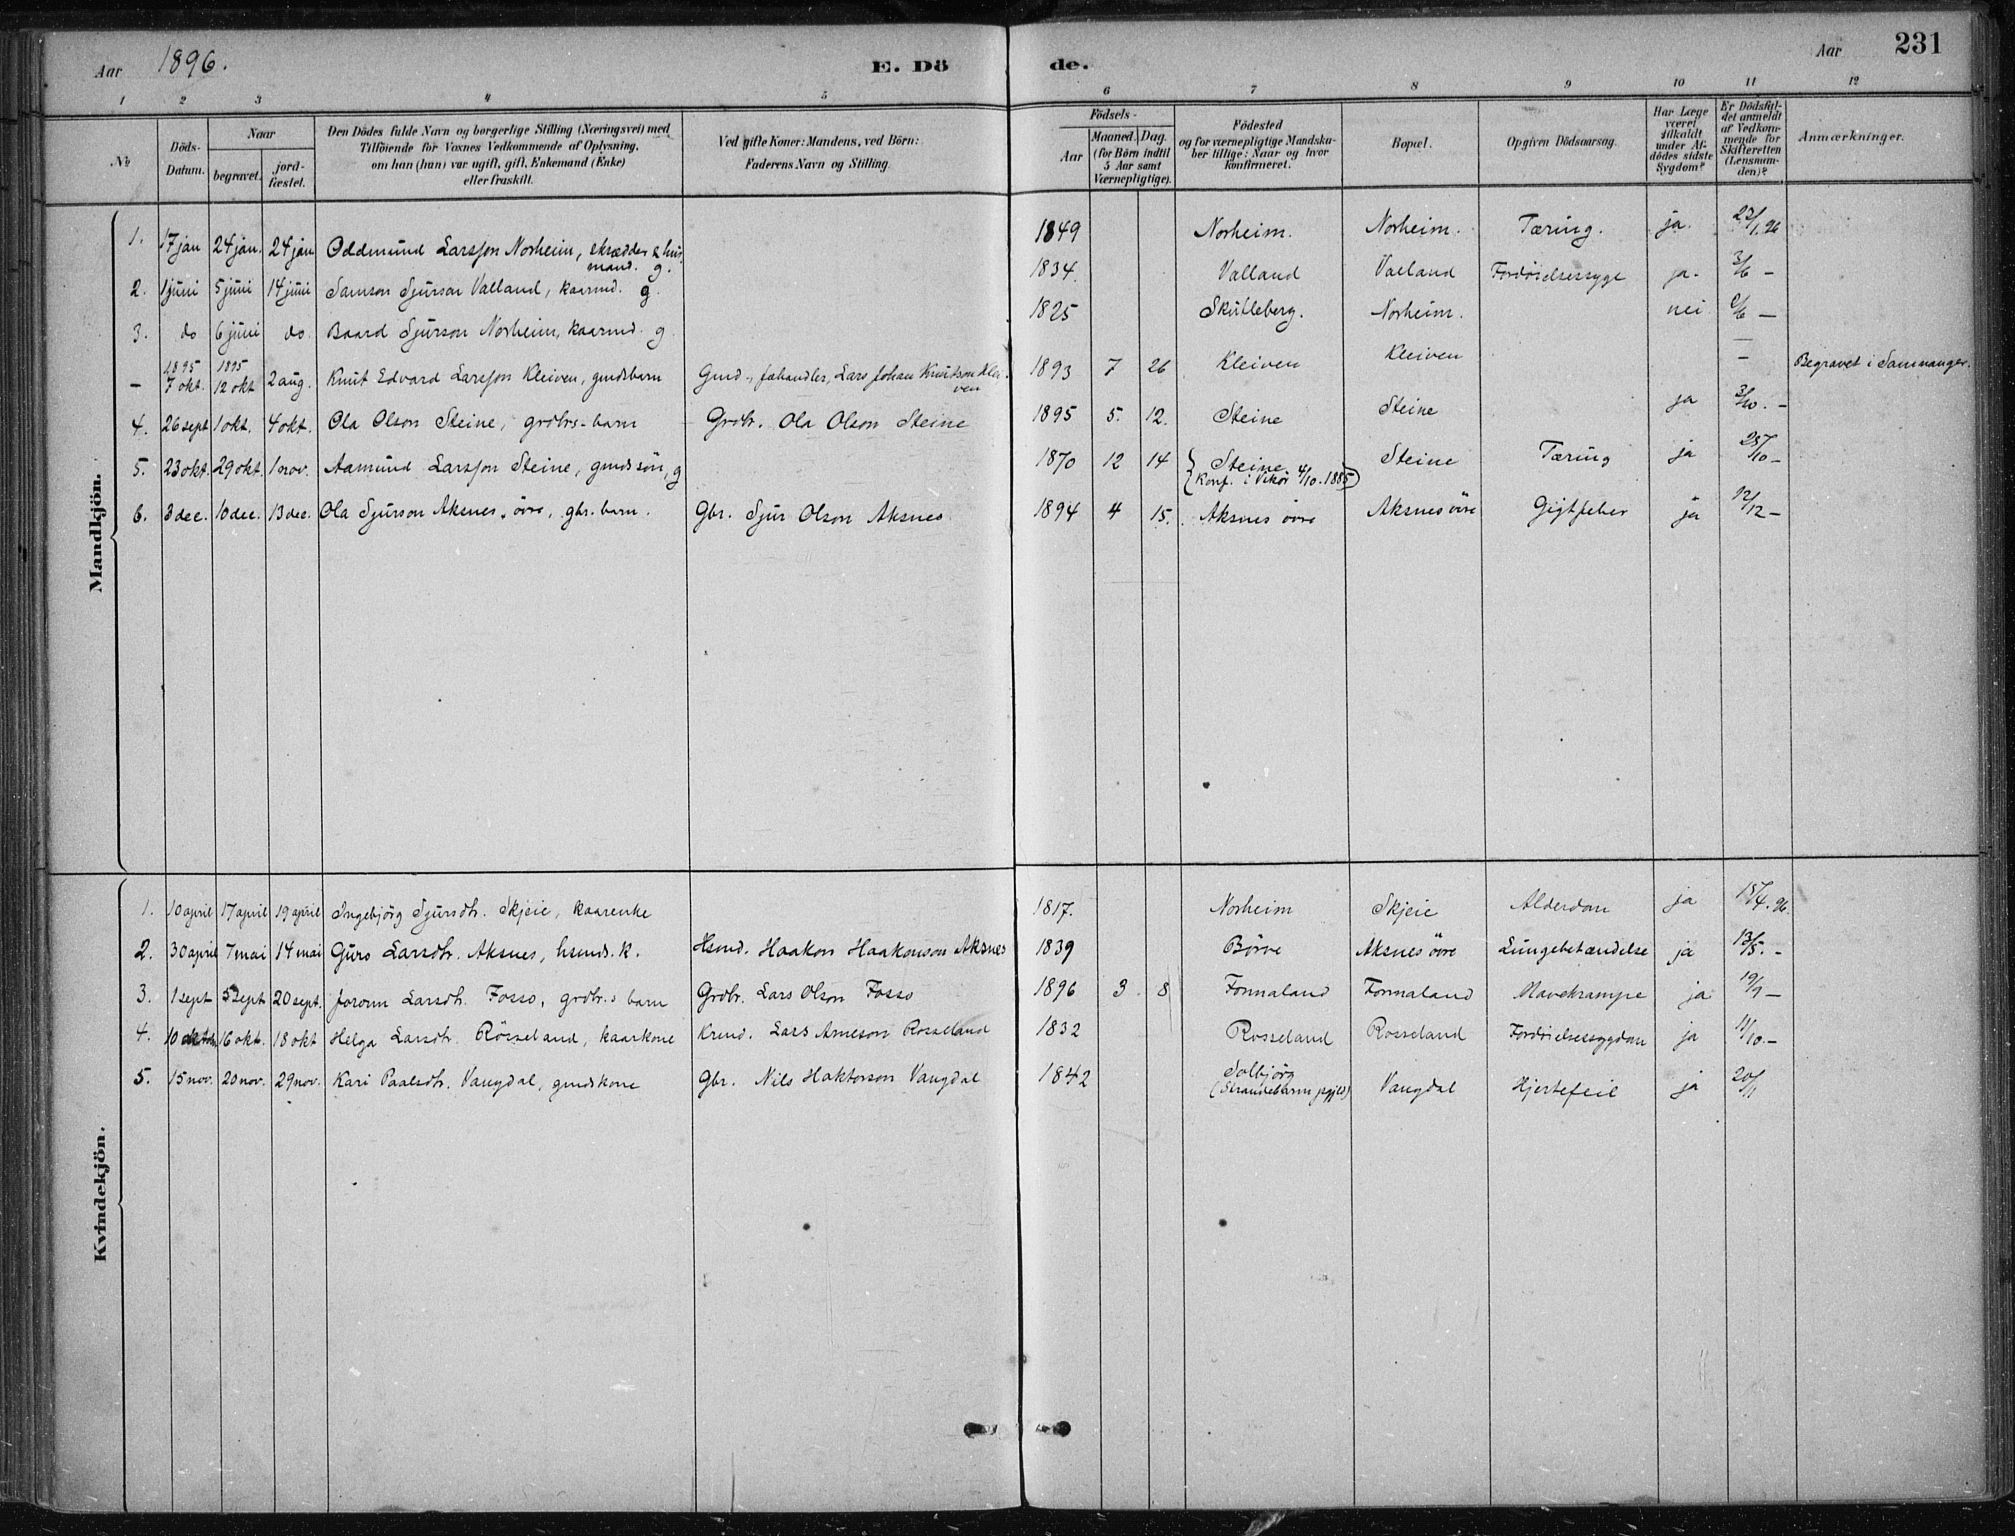 Aar 1896. E. Dö de. Aar 231
1 2 3 4 5 6 7 8 9 10 11 12
№
Döds-Datum.
Naar
begravet.
jord-fæstet.
Den Dödes fulde Navn og borgerlige Stilling (Næringsvei) med
Tilföiende för Voxnes Vedkommende af Oplysning,
om han (hun) var ugift, gift, Enkemand (Enke)
eller fraskilt.
Ved gifte Koner: Mandens, ved Börn:
Faderens Navn og Stilling.
Födsels-
Aar
Maaned. Dag.
(for Börn indtil
5 Aar samt
Værnepligtige).
Födested
og for værnepligtige Mandska-
ber tillige: Naar og hvor
konfirmeret.
Bopæl.
Opgiven Dödsaarsag.
Har Læge
været
tilkaldt
under Af-
dödes sidste
Sygdom?
Er Dödsfal-
det anmeldt
af Vedkom-
mende for
Skifteretten
(Lensman-
den)?
Anmærkninger.
Mandkjön.
1. 17 jan 24 jan. 24 jan Oddmund Larsson Norheim, skrædder & hus- 1849 Norheim. Norheim. Tæring. ja. 22/1.96
mand. g.
2. 1 juni 5 juni 14 juni Samson Sjurson Valland, kaarmd. g. 1834. Valland Valland Fordöielsessyge ja. 3/6 –
3. do 6 juni do. Baard Sjurson Norheim, kaarmd. g. 1825 Skutleberg. Norheim. nei /6 –
1895 1895 –
– 7 okt. 12 okt 2 aug. Knut Edvard Larsson Kleiven, gmdsbarn Gmd., fæhandler, Lars Johan Knutson Klei- 1893 7 26 Kleiven Kleiven – Begravet i Sammanger.
ven
4. 26 sept 1 okt. 4 okt. Ola Olson Steine, grdbrs-barn Grdbr. Ola Olson Steine 1895 5. 12. Steine Steine ja 3/10. –
5. 23 okt. 29 okt. 1 nov. Aamund Larsson Steine, gmds sön, g 1870 12 14 Steine Steine Tæring ja 25/10 –
(konf. i Vikör 4/10.1885)
6. 3 dec. 10 dec. 13 dec. Ola Sjurson Aksnes, övre, gbr. barn. Gbr. Sjur Olson Aksnes 1894 4 15. Aksnes övre Aksnes övre Gigtfeber ja 12/12 –
Kvindekjön.
1. 10 april 17 april 19 april Ingebjörg Sjursdtr. Skjeie, kaarenke 1817. Norheim Skjeie Alderdom ja 15/4.96.
2. 30 april 7 mai 14 mai Guro Larsdtr. Aksnes, hsmds. k. Hsmd. Haakon Haakonson Aksnes 1839 Börve Aksnes övre Lungebetændelse ja 13/5. –
3. 1 sept 5 sept 20 sept. Joronn Larsdtr. Fosso, grdbr.s barn Grdbr. Lars Olson Fosso 1896 3 8 Fonnaland Fonnaland Mavekrampe ja 19/9 –
4. 10 16 okt. 18 okt Helga Larsdtr. Rösseland, kaarkone Krmd. Lars Arneson Rosseland 1832 Rosseland Rosseland Fordöielsessygdom ja 11/10. –
5. 15 nov. 20 nov. 29 nov. Kari Paalsdtr. Vangdal, gmdskone Gbr. Nils Haktorson Vangdal 1842 Solbjörg Vangdal Hjertefeil ja
(Strandebarm pgjld)